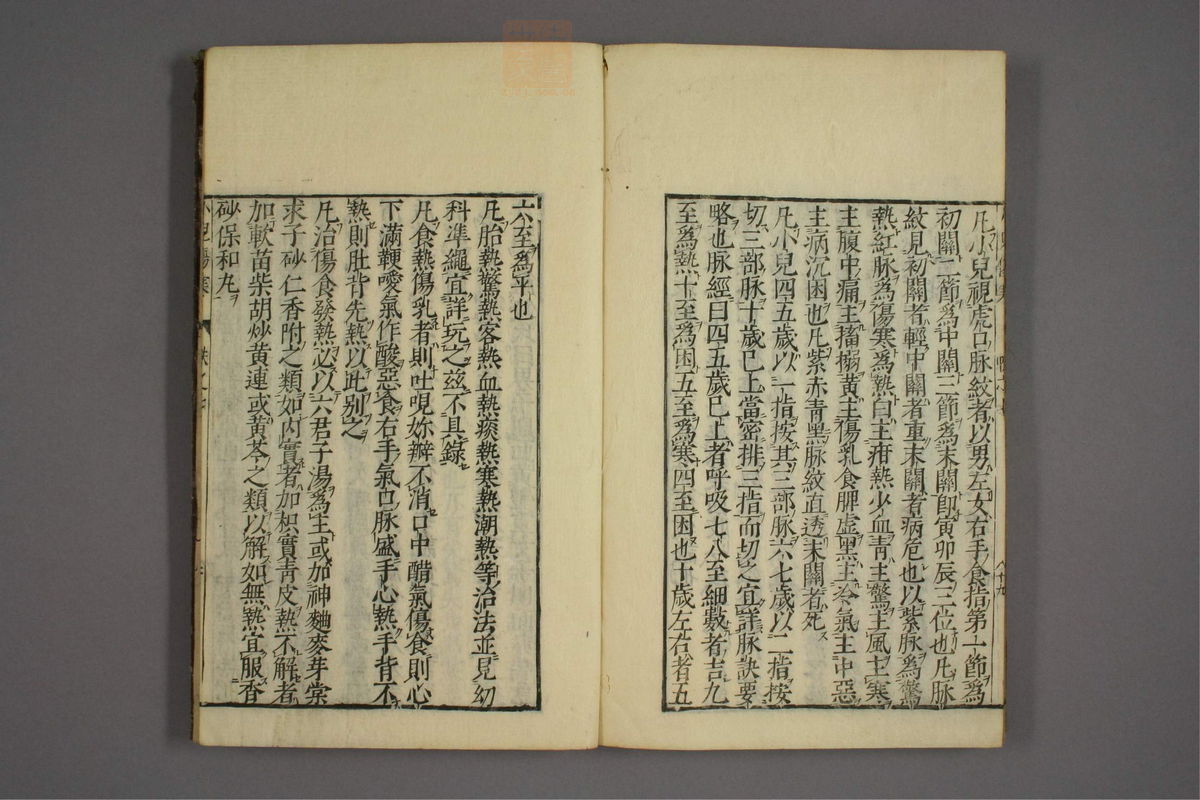 凡小兒視虎口脉紋者以男左女右手食指第一節爲
初關二節爲中關三節爲末關卽寅卯辰三位也凡脉
紋見初關者輕中關者重末關者病危也以紫脉爲驚
熱紅脉爲傷寒爲熱白主疳熱少血青主驚主風主寒
主腹中痛主搐搦黄主傷乳食脾虚黑主冷氣主中惡
主病沉困也凡紫赤青黑脉紋直透末關者死
凡小兒四五歲以一指按其三部脉六七歲以二指按
切三部脉十歲已上當密排三指而切之宜詳脉訣要
略也脉經曰四五歲已上者呼吸七八至細數者吉九
至爲熱十至爲困五至爲寒四至困也十歲左右者五
六至爲平也
凡胎熱驚熱客熱血熱痰熱寒熱潮熱等治法並見幼
科準繩宜詳玩之兹不具録
凡食熱傷乳者則吐哯妳瓣不消口中醋氣傷食則心
下滿鞕噯氣作酸惡食右手氣口脉盛手心熱手背不
熱則肚背先熱以此别之
凡治傷食發熱必以六君子湯爲主或加神麯麥芽棠
求子砂仁香附之類如内實者加枳實青皮熱不解者
加軟苗柴胡炒黄連或黄芩之類以解如無熱宜服香
砂保和丸